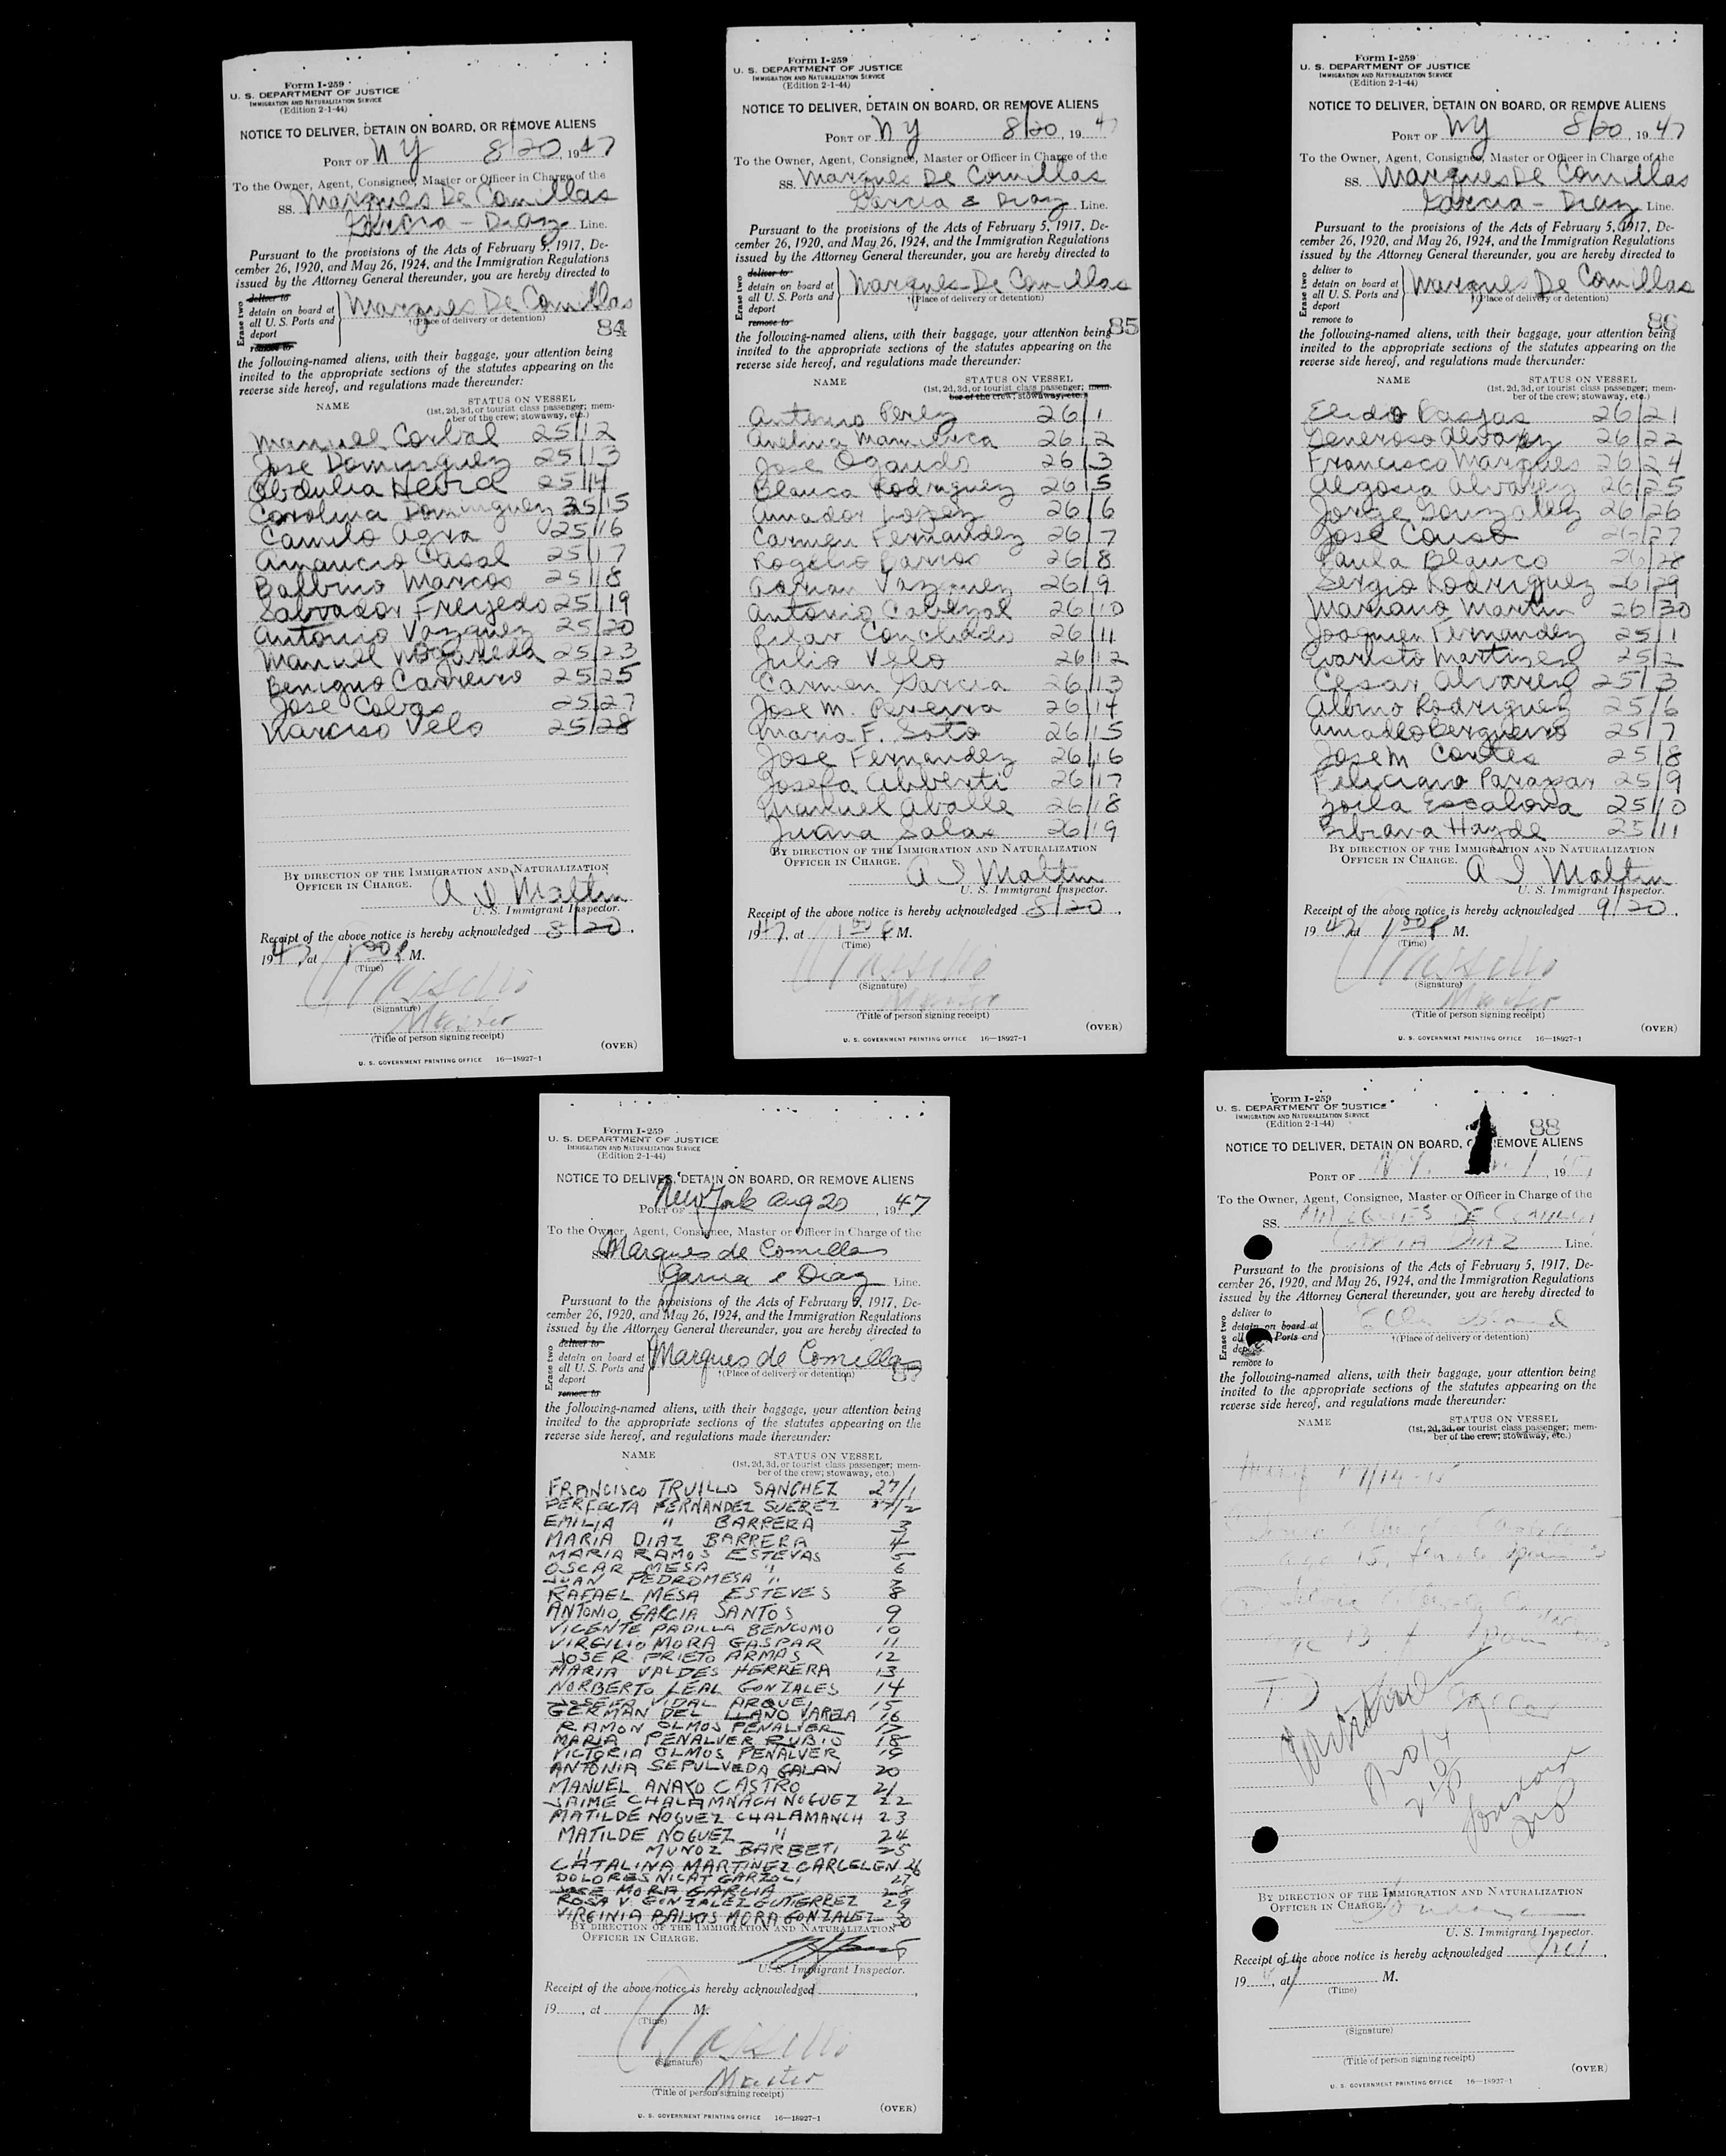 Form I-259
U. S. DEPARTMENT OF JUSTICE
IMMIGRATION AND NATURALIZATION SERVICE
(Edition 2-1-44)
NOTICE TO DELIVER, DETAIN ON BOARD, OR REMOVE ALIENS
PORT OF N Y 8/20, 1947
To the Owner, Agent, Consignee, Master or Officer in Charge of the
SS. Marques De Comillas
Garcia - Diaz Line.
Pursuant to the provisions of the Acts of February 5, 1917, De-
cember 26, 1920, and May 26, 1924, and the Immigration Regulations
issued by the Attorney General thereunder, you are hereby directed to
Erase two
deliver to
detain on board at
all U. S. Ports and
deport
remove to
Marques De Comillas
†(Place of delivery or detention)
84
the following-named aliens, with their baggage, your attention being
invited to the appropriate sections of the statutes appearing on the
reverse side hereof, and regulations made thereunder:
NAME STATUS ON VESSEL
(1st, 2d, 3d, or tourist class passenger; mem-
ber of the crew; stowaway, etc.)
Manuel Corbal 25/12
Jose Dominguez 25/13
Obdulia 25/14
Carolina Dominguez 25/15
Camilo Agra 25/16
Amancio Casal 25/17
Balbino Marcos 25/18
Salvador Freijedo 25/19
Antonio Vazquez 25/20
Manuel Nogareda 25/23
Benigno Carreiro 25/25
Jose Cobas 25/27
Narciso Velo 25/28
BY DIRECTION OF THE IMMIGRATION AND NATURALIZATION
OFFICER IN CHARGE.
A I Maltin
U. S. Immigrant Inspector.
Receipt of the above notice is hereby acknowledged 8/20.
1947, at 1 00 P M.
(Time)
(Signature)
Master
(Title of person signing receipt)
(OVER)
U. S. GOVERNMENT PRINTING OFFICE 16—18927-1
Form I-259
U. S. DEPARTMENT OF JUSTICE
IMMIGRATION AND NATURALIZATION SERVICE
(Edition 2-1-44)
NOTICE TO DELIVER, DETAIN ON BOARD, OR REMOVE ALIENS
PORT OF N Y 8/20, 1947
To the Owner, Agent, Consignee, Master or Officer in Charge of the
SS. Marques De Comillas
Garcia & Diaz Line.
Pursuant to the provisions of the Acts of February 5, 1917, De-
cember 26, 1920, and May 26, 1924, and the Immigration Regulations
issued by the Attorney General thereunder, you are hereby directed to
Erase two
deliver to
detain on board at
all U. S. Ports and
deport
remove to
Marques De Comillas
†(Place of delivery or detention)
85
the following-named aliens, with their baggage, your attention being
invited to the appropriate sections of the statutes appearing on the
reverse side hereof, and regulations made thereunder:
NAME STATUS ON VESSEL
(1st, 2d, 3d, or tourist class passenger; mem-
ber of the crew; stowaway, etc.)
Antonio Perez 26/1
Avelina 26/2
Jose Ogando 26/3
Blanca Rodriguez 26/5
Amador Lopez 26/6
Carmen Fernandez 26/7
Rogelio Barros 26/8
Adrian Vazquez 26/9
Antonio Cabezal 26/10
Pilar Conchado 26/11
Julio Velo 26/12
Carmen Garcia 26/13
Jose M. Pereira 26/14
Maria F. Soto 26/15
Jose Fernandez 26/16
Josefa Aliberti 26/17
Manuel Avalle 26/18
Juana Salas 26/19
BY DIRECTION OF THE IMMIGRATION AND NATURALIZATION
OFFICER IN CHARGE.
A I Maltin
U. S. Immigrant Inspector.
Receipt of the above notice is hereby acknowledged 8/20.
1947, at 1 00 P M.
(Time)
(Signature)
Master
(Title of person signing receipt)
(OVER)
U. S. GOVERNMENT PRINTING OFFICE 16—18927-1
Form I-259
U. S. DEPARTMENT OF JUSTICE
IMMIGRATION AND NATURALIZATION SERVICE
(Edition 2-1-44)
NOTICE TO DELIVER, DETAIN ON BOARD, OR REMOVE ALIENS
PORT OF NY 8/20, 1947
To the Owner, Agent, Consignee, Master or Officer in Charge of the
SS. Marques De Comillas
Garcia - Diaz Line.
Pursuant to the provisions of the Acts of February 5, 1917, De-
cember 26, 1920, and May 26, 1924, and the Immigration Regulations
issued by the Attorney General thereunder, you are hereby directed to
Erase two
deliver to
detain on board at
all U. S. Ports and
deport
remove to
Marques De Comillas
†(Place of delivery or detention)
86
the following-named aliens, with their baggage, your attention being
invited to the appropriate sections of the statutes appearing on the
reverse side hereof, and regulations made thereunder:
NAME STATUS ON VESSEL
(1st, 2d, 3d, or tourist class passenger; mem-
ber of the crew; stowaway, etc.)
Elido 26/21
Generoso Alvarez 26/22
Francisco Marques 26/24
Alvarez 26/25
Jorge Gonzalez 26/26
Jose Couso 26/27
Paula Blanco 26/28
Sergio Rodriguez 26/29
Mariano Martin 26/30
Joaquin Fernandez 25/1
Evaristo Martinez 25/2
Cesar Alvarez 25/3
Albino Rodriguez 25/6
Amadeo Bergueiro 25/7
Jose M Cortes 25/8
Feliciano 25/9
Zoila Escalona 25/10
Hayde 25/11
BY DIRECTION OF THE IMMIGRATION AND NATURALIZATION
OFFICER IN CHARGE.
A I Maltin
U. S. Immigrant Inspector.
Receipt of the above notice is hereby acknowledged 9/20.
1947, at 1 00 P M.
(Time)
(Signature)
Master
(Title of person signing receipt)
(OVER)
U. S. GOVERNMENT PRINTING OFFICE 16—18927-1
Form I-259
U. S. DEPARTMENT OF JUSTICE
IMMIGRATION AND NATURALIZATION SERVICE
(Edition 2-1-44)
NOTICE TO DELIVER, DETAIN ON BOARD, OR REMOVE ALIENS
PORT OF New York Aug 20, 1947
To the Owner, Agent, Consignee, Master or Officer in Charge of the
SS. Marques de Comillas
Garcia & Diaz Line.
Pursuant to the provisions of the Acts of February 5, 1917, De-
cember 26, 1920, and May 26, 1924, and the Immigration Regulations
issued by the Attorney General thereunder, you are hereby directed to
Erase two
deliver to
detain on board at
all U. S. Ports and
deport
remove to
Marques de Comillas
†(Place of delivery or detention)
87
the following-named aliens, with their baggage, your attention being
invited to the appropriate sections of the statutes appearing on the
reverse side hereof, and regulations made thereunder:
NAME STATUS ON VESSEL
(1st, 2d, 3d, or tourist class passenger; mem-
ber of the crew; stowaway, etc.)
FRANCISCO TRUILLO SANCHEZ 27/1
PERFECTA FERNANDEZ SUEREZ 27/2
EMILIA " BARRERA 3
MARIA DIAZ BARRERA 4
MARIA RAMOS ESTEVAS 5
OSCAR MESA " 6
JUAN PEDROMESA " 7
RAFAEL MESA ESTEVES 8
ANTONIO GARCIA SANTOS 9
VICENTE PADILLA BENCOMO 10
VIRGILIO MORA GASPAR 11
JOSE R. PRIETO ARMAS 12
MARIA VALDES HERRERA 13
NORBERTO LEAL GONZALES 14
JOSEFA VIDAL ARQUE 15
GERMAN DEL LLANO VARELA 16
RAMON OLMOS PENALVER 17
MARIA PENALVER RUBIO 18
VICTORIA OLMOS PENALVER 19
ANTONIA SEPULVEDA GALAN 20
MANUEL ANAYO CASTRO 21
JAIME CHALAMNACH NOGUEZ 22
MATILDE NOGUEZ CHALAMANCH 23
MATILDE NOGUEZ " 24
" MUNOZ BARBETI 25
CATALINA MARTINEZ CARCELEN 26
DOLORES NICAT GARZOLI 27
JOSE MORA GARCIA 28
ROSA V. GONZALEZ GUTIERREZ 29
VIRGINIA MORA GONZALEZ 30
BY DIRECTION OF THE IMMIGRATION AND NATURALIZATION
OFFICER IN CHARGE.
U. S. Immigrant Inspector.
Receipt of the above notice is hereby acknowledged
19, at M.
(Time)
(Signature)
Master
(Title of person signing receipt)
(OVER)
U. S. GOVERNMENT PRINTING OFFICE 16—18927-1
Form I-259
U. S. DEPARTMENT OF JUSTICE
IMMIGRATION AND NATURALIZATION SERVICE
(Edition 2-1-44)
88
NOTICE TO DELIVER, DETAIN ON BOARD, REMOVE ALIENS
PORT OF N.Y. , 19
To the Owner, Agent, Consignee, Master or Officer in Charge of the
SS. MARQUES DE COMILLAS
GARCIA DIAZ Line.
Pursuant to the provisions of the Acts of February 5, 1917, De-
cember 26, 1920, and May 26, 1924, and the Immigration Regulations
issued by the Attorney General thereunder, you are hereby directed to
Erase two
deliver to
detain on board at
all Ports and
deport
remove to
Ellis Island
†(Place of delivery or detention)
the following-named aliens, with their baggage, your attention being
invited to the appropriate sections of the statutes appearing on the
reverse side hereof, and regulations made thereunder:
NAME STATUS ON VESSEL
(1st, 2d, 3d, or tourist class passenger; mem-
ber of the crew; stowaway, etc.)
age 15, female
age 13
BY DIRECTION OF THE IMMIGRATION AND NATURALIZATION
OFFICER IN CHARGE.
U. S. Immigrant Inspector.
Receipt of the above notice is hereby acknowledged
19, at M.
(Time)
(Signature)
(Title of person signing receipt)
(OVER)
U. S. GOVERNMENT PRINTING OFFICE 16—18927-1